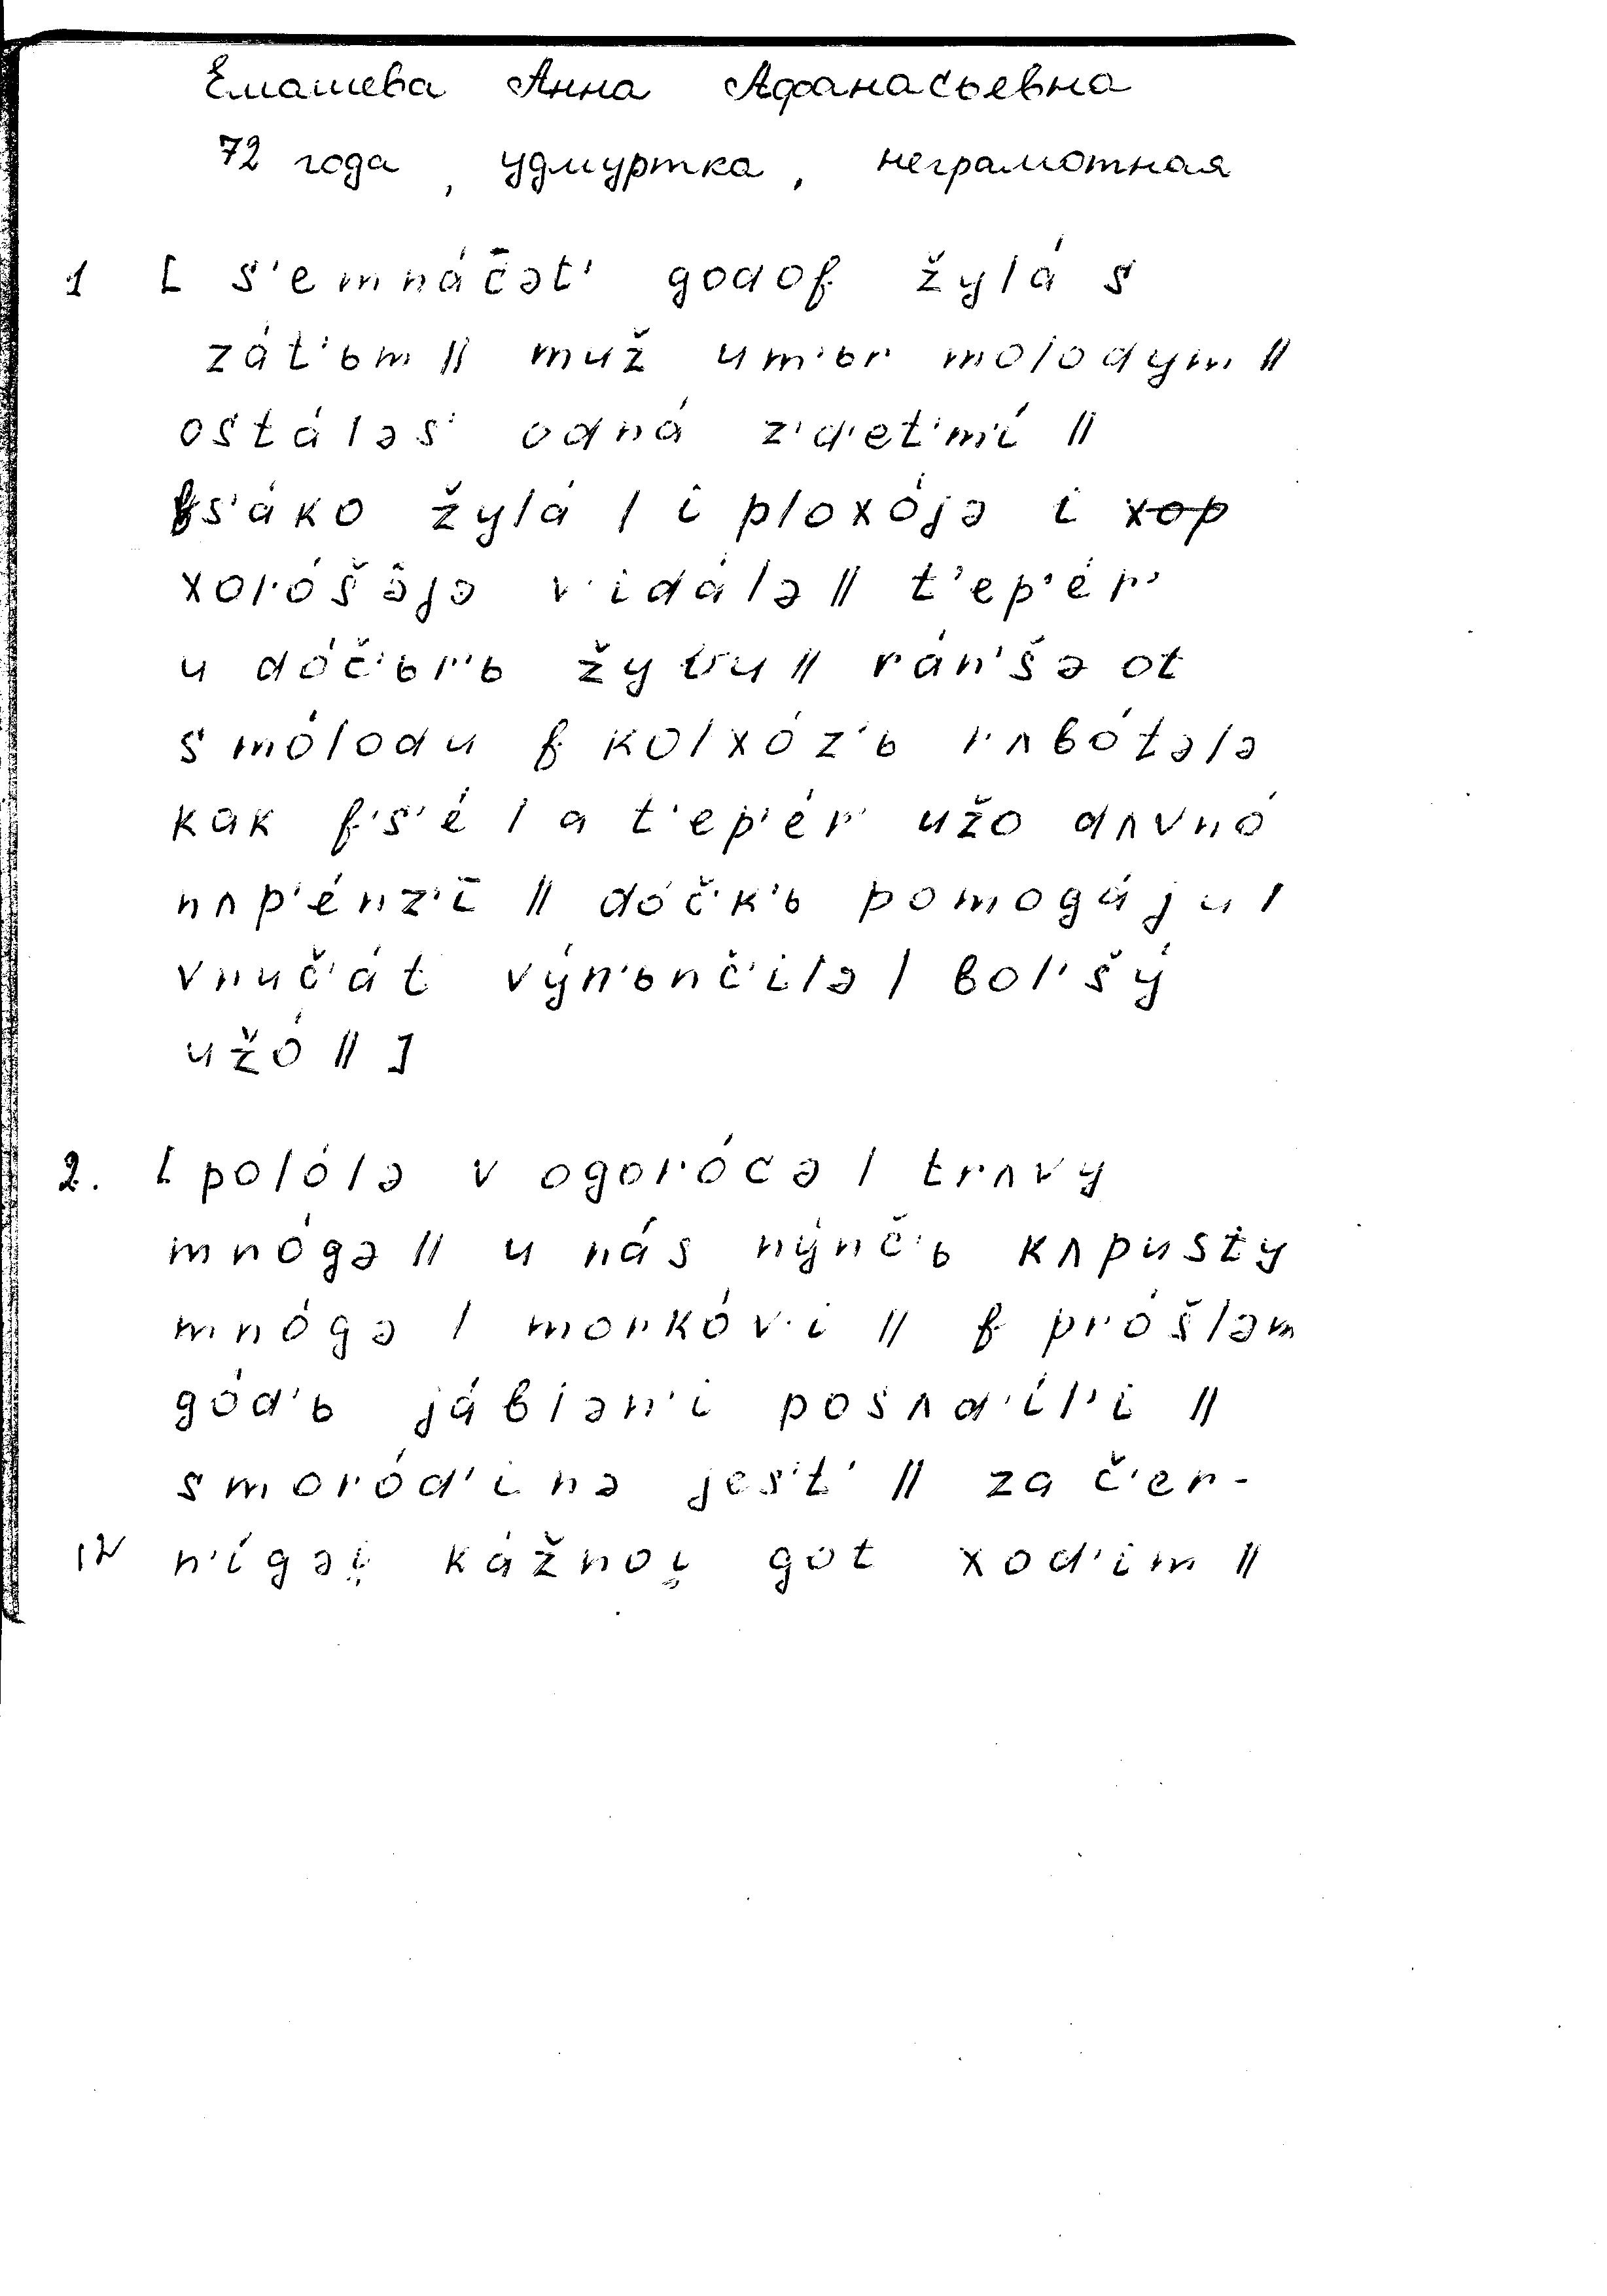 Емашева Анна Афанасьевна
72 года, удмуртка, неграмотная
1 [ s'emnác̄ət' godof žylá s
zát'ьm || muž um'ьr molodym ||
ostáləs' odná z'd'et'm'í ||
fs'áko žylá | i ploxójə i xop
xoróšəjə v'idálə || t'ep'ér'
u dóč'ьr'ь žyvu || rán'šə ot
smólodu f kolxóz'ь rʌbótələ
kak f's'é | a t'ep'ér' užo dʌvnó
nʌp'énz'ī || dóč'k'ь pomogáju |
vnuč'át výn'ьnč'ilə | bol'šý
užó || ]
2. [ polólə v ogorócə | trʌvy
mnógə || u nás nýnč'ь kʌpusty
mnógə | morkóv'i || f próšləm
gód'ь jáblən'i posʌd'íl'i ||
smoród'inə jes't' || za č'er-
12 n'ígəi̯ kážnoi̯ got xod'im ||